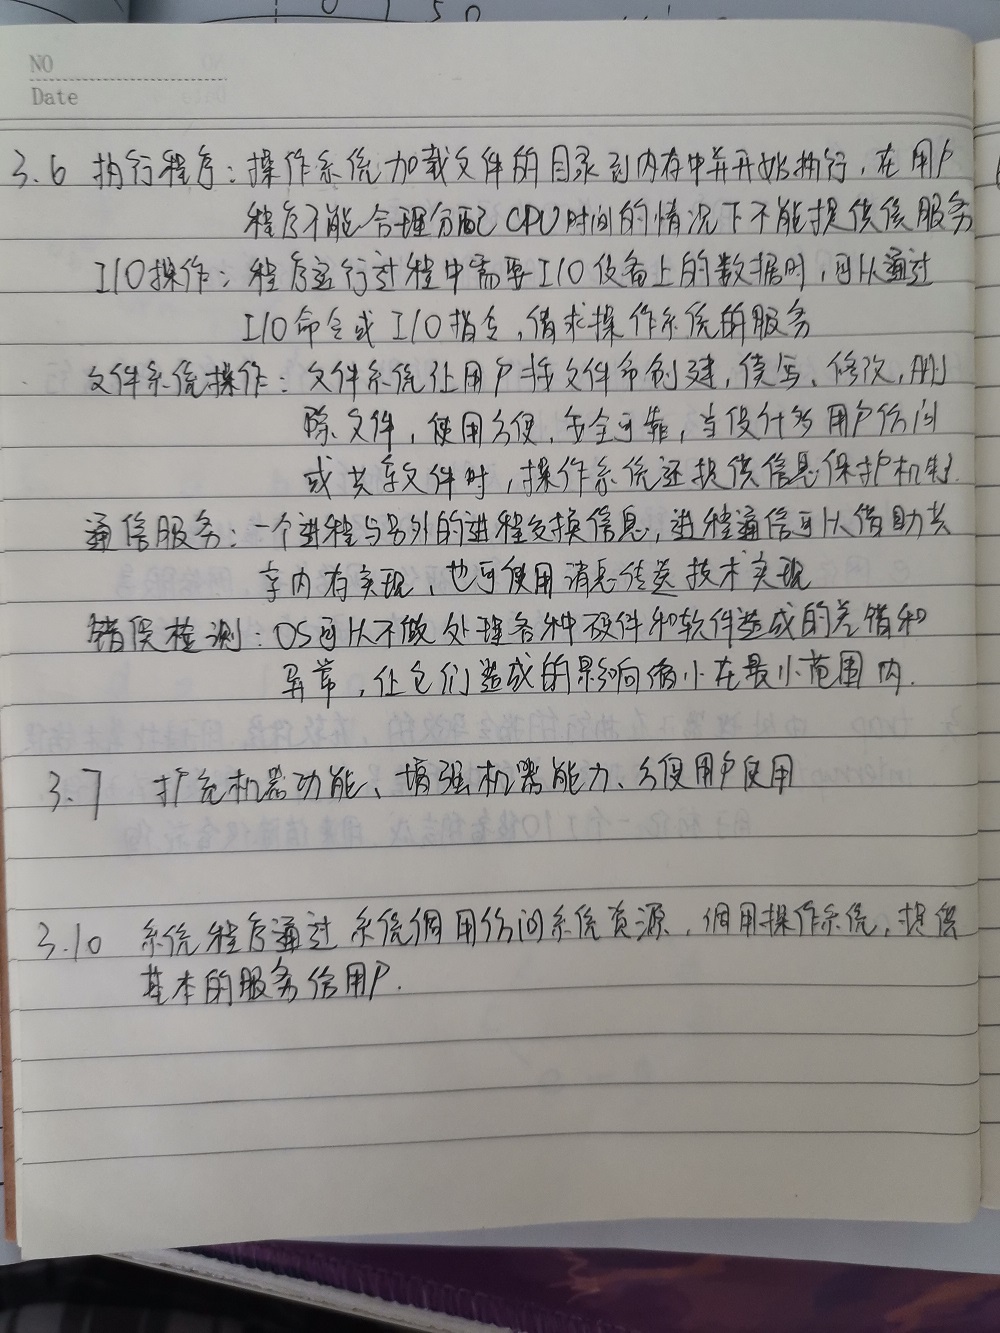 NO
Date
3.6 执行程序：操作系统加载文件的目录到内存中并开始执行，在用户
程序不能合理分配CPU时间的情况下不能提供使服务
I/O操作：程序运行过程中需要I/O设备上的数据时，可以通过
I/O命令或I/O指令，请求操作系统的服务
文件系统操作：文件系统让用户按文件名创建，读写、修改，删
除文件，使用方便，安全可靠，当设计多用户访问
或共享文件时，操作系统还提供信息保护机制.
通信服务：一个进程与另外的进程交换信息，进程通信可以借助共
享内存实现，也可使用消息传送技术实现
错误检测：OS可以不做处理各种硬件和软件造成的差错和
异常，让它们造成的影响缩小在最小范围内.
3.7 扩充机器功能、增强机器能力、方便用户使用
3.10 系统程序通过系统调用访问系统资源，调用操作系统，提供
基本的服务给用户.